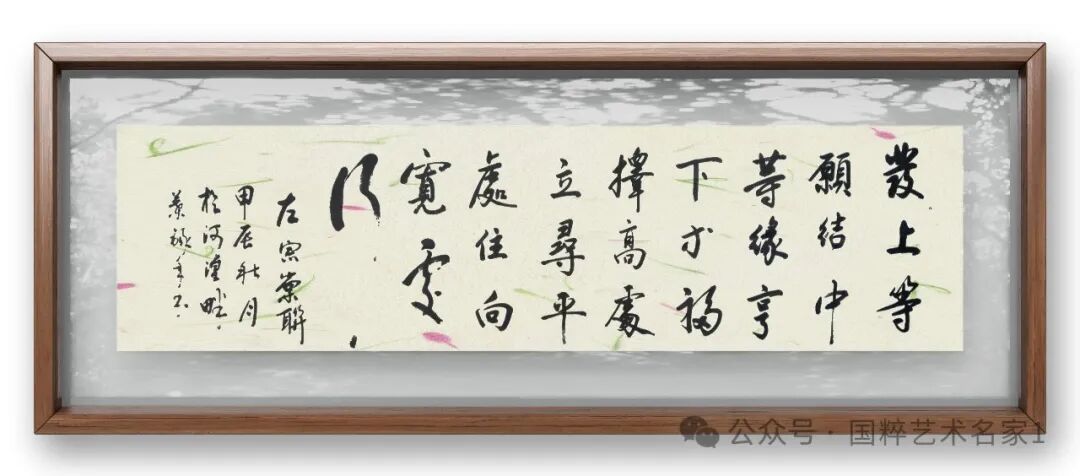 發上等
願結中
等緣享
下等福
擇高處
立尋平
處住向
寬處
行
左宗棠聯
甲辰秋月
於河湟畔
公众号 · 国粹艺术名家1